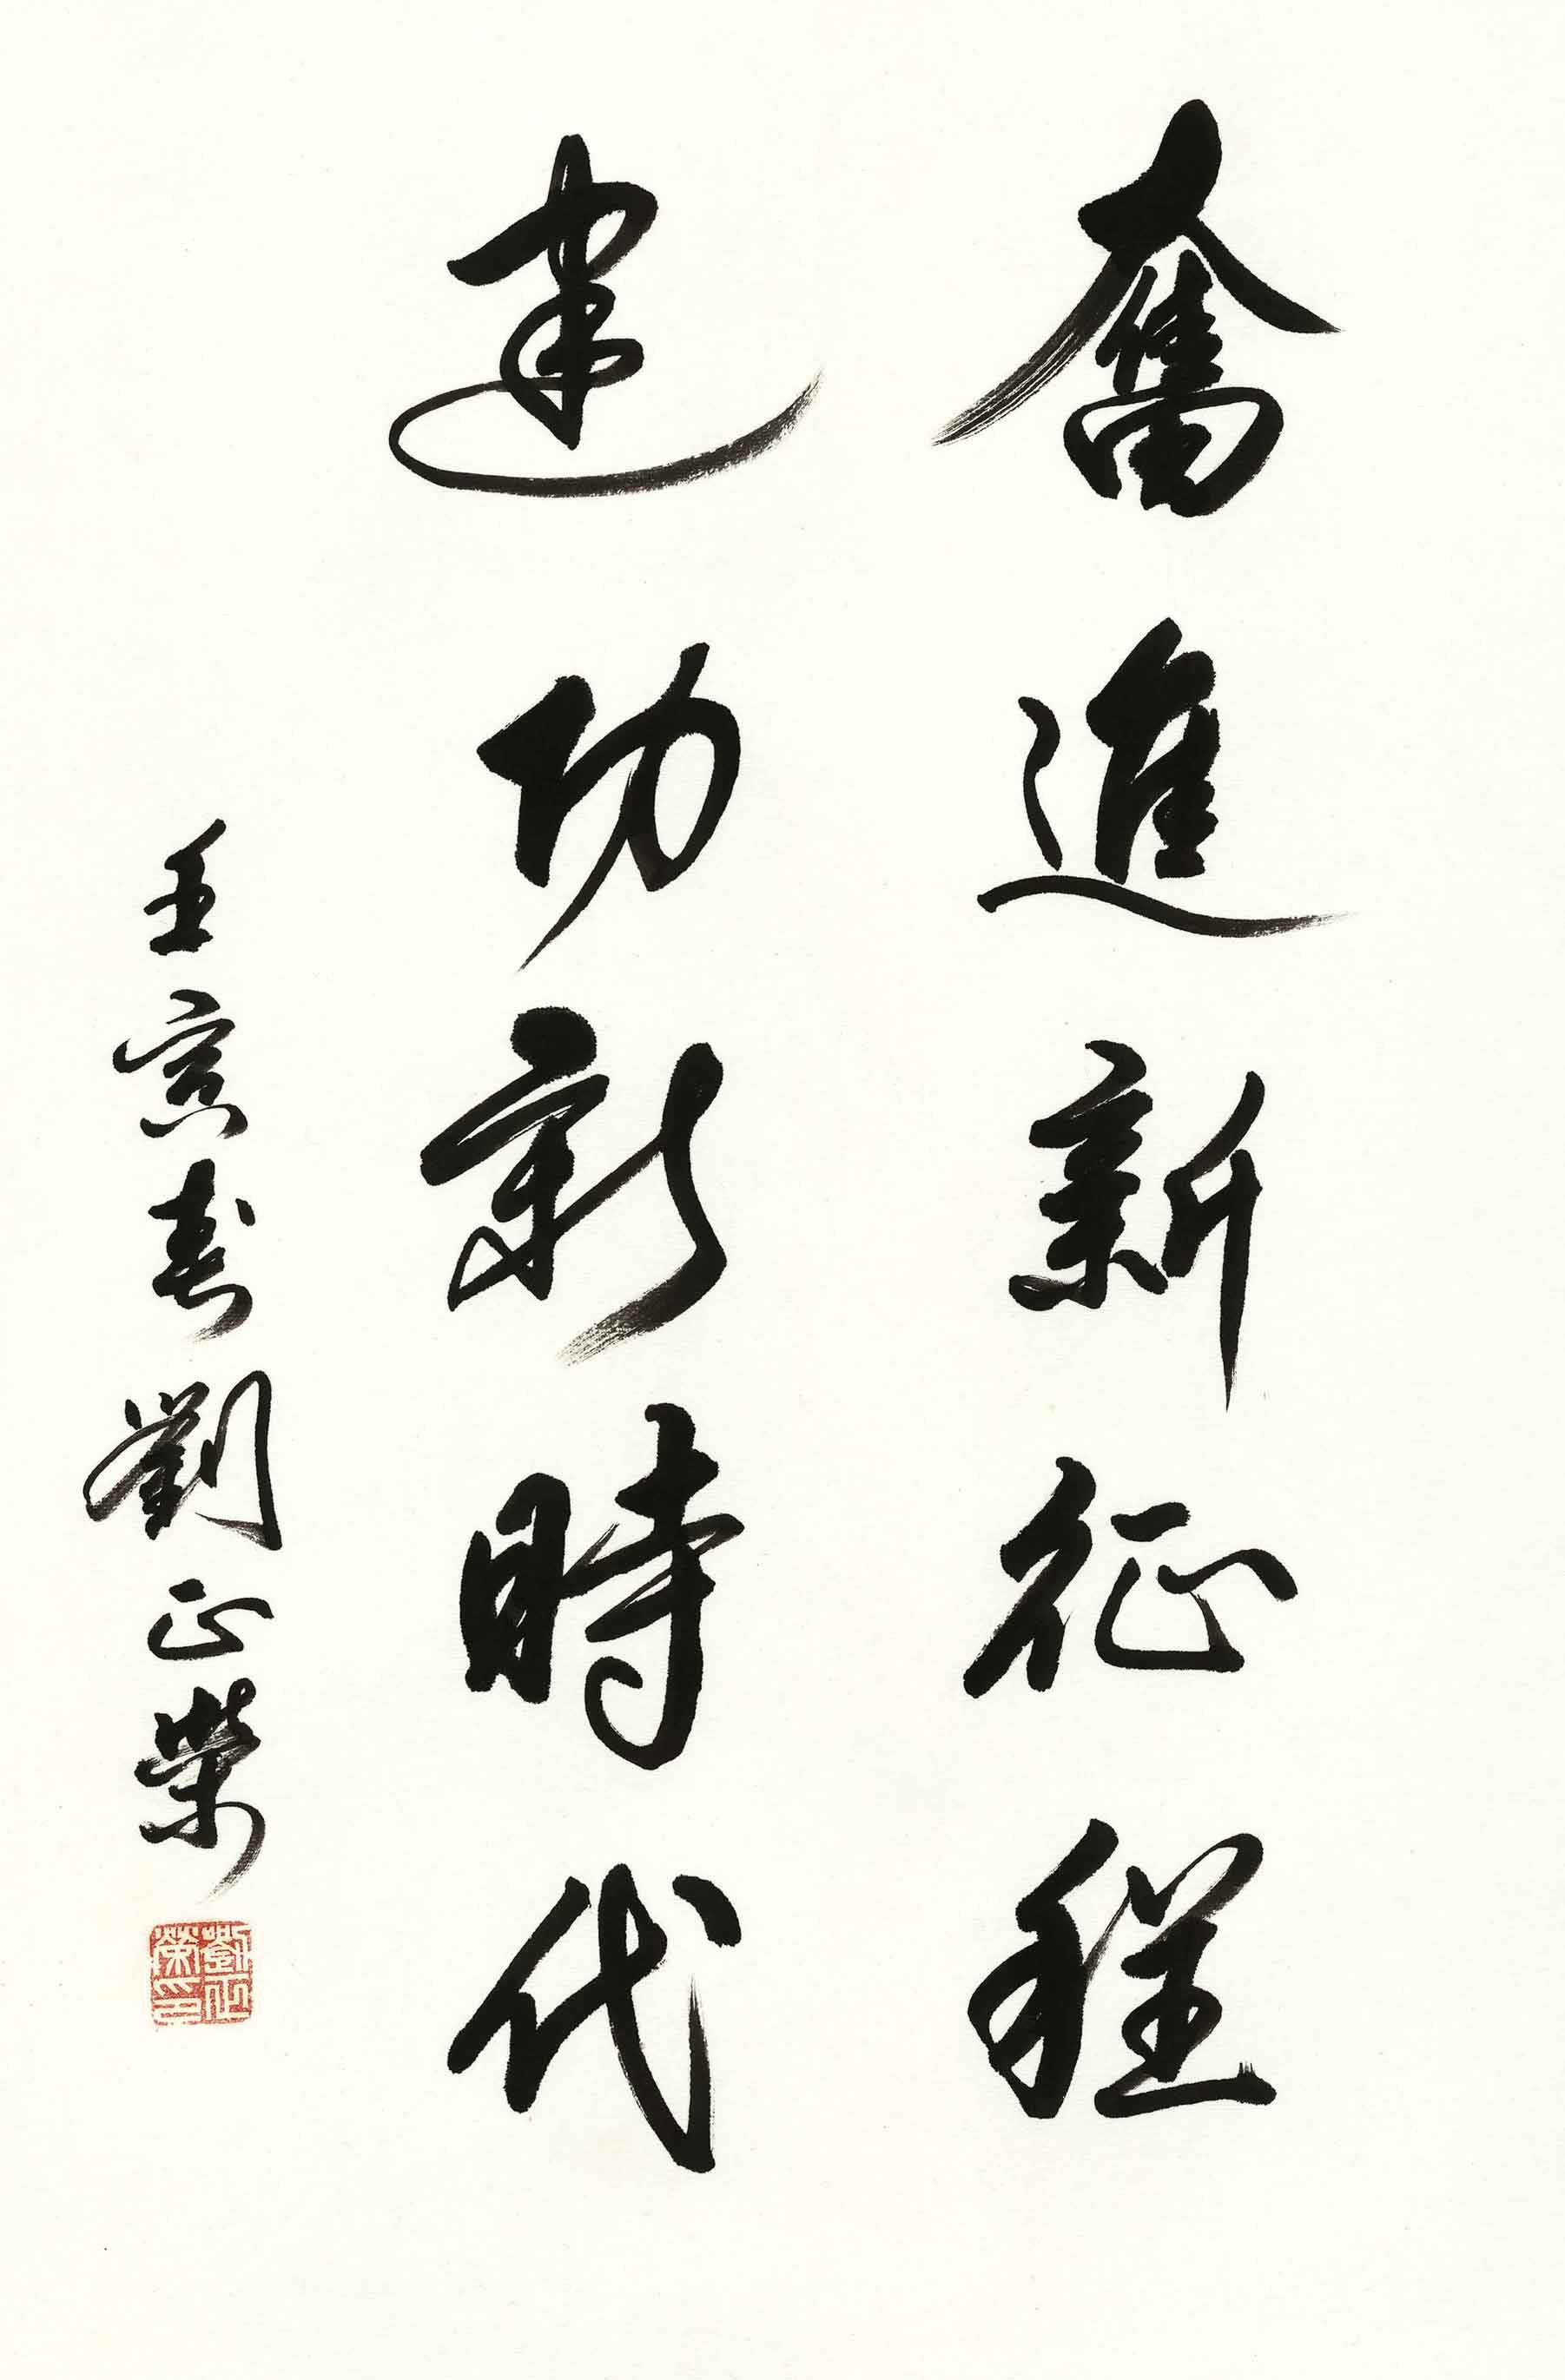 奮進新征程
建功新時代
壬寅春劉正榮
劉正
榮印